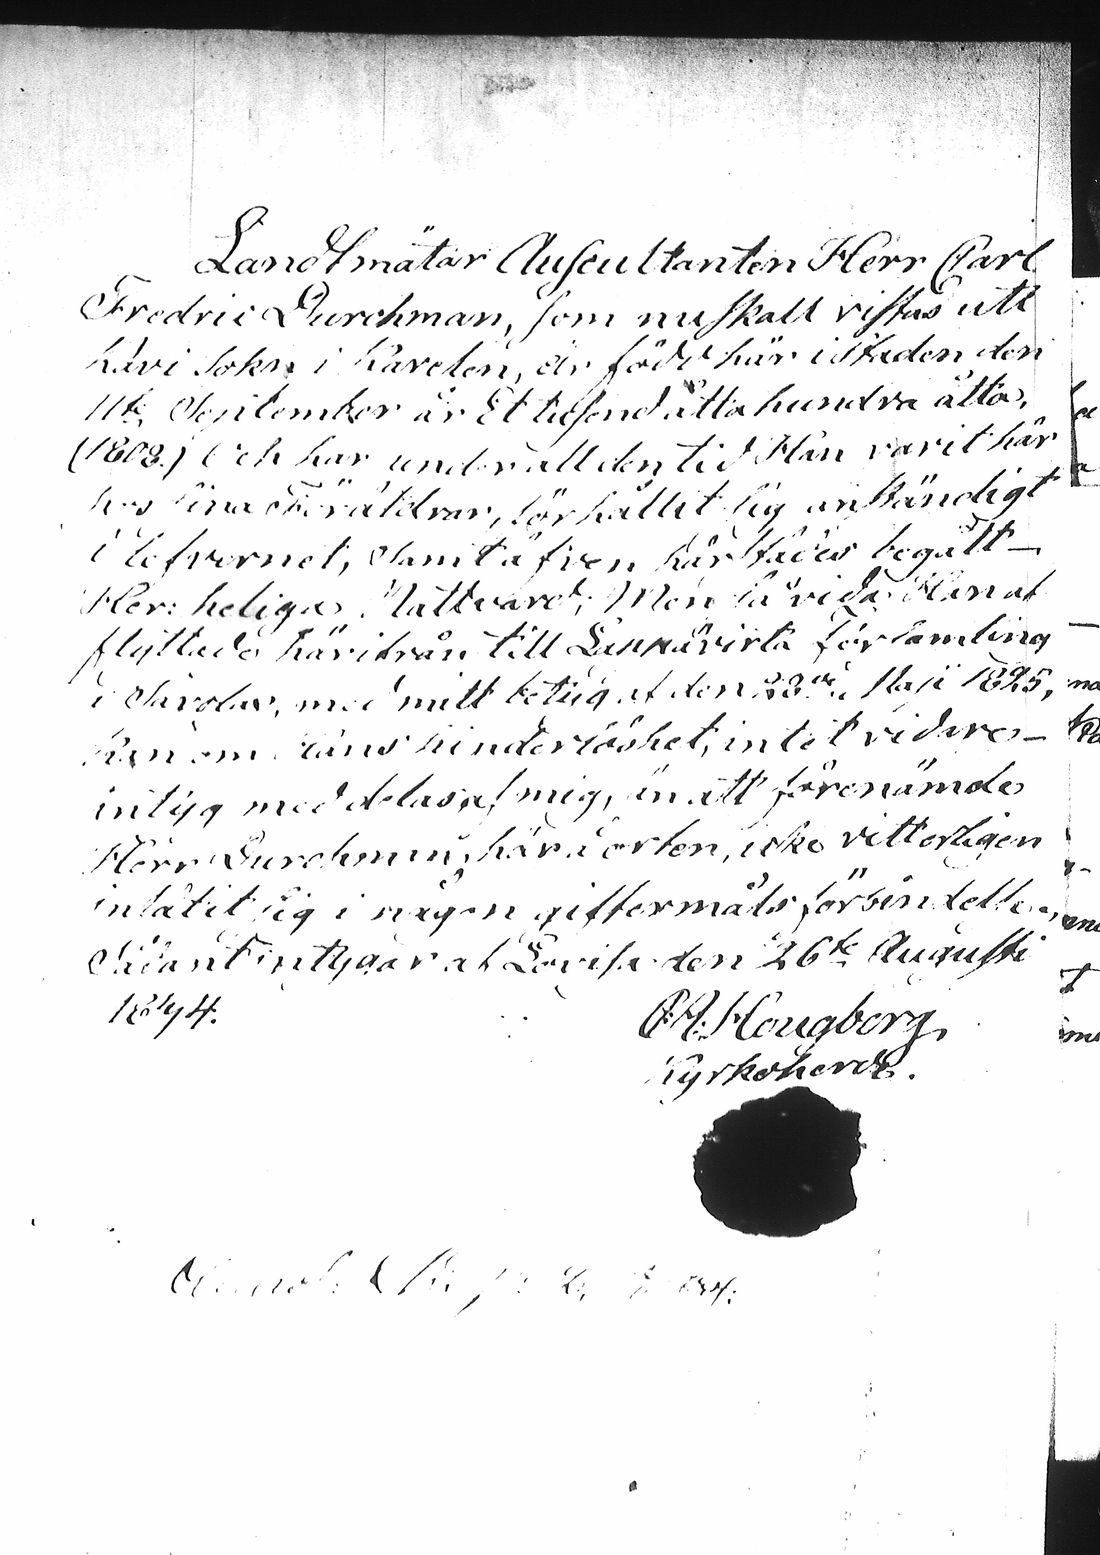 Landtmätar Auscultanten Herr Carl
Fredric Durchman, som nu skall vistas utl
Kavi Sokn i Karelen, är född här i Staden den
11te September år Ett tusend åtta hundra åtta,
(1808.) Och har under all den tid Han varit här
hos sina Föräldrar, förhållit sig anständigt
i lefvernet, samt äfven härstädes begått
Her: heliga Nattvard; Men så vida Han af
flyttade härifrån till Lappävirta församling
i Savolax, med mitt betyg af den 28de Maji 1825,
kan om Hans hinderlöshet, intet vidare
intyg meddelas af mig, än att förenämde
Herr Durchman, här i orten, icke vitterligen
inlåtit sig i någon giftermåls förbindelse,
Sådant intygar at Lovisa den 26te Augusti
18 4.
Hougberg,
Kyrkoherde.